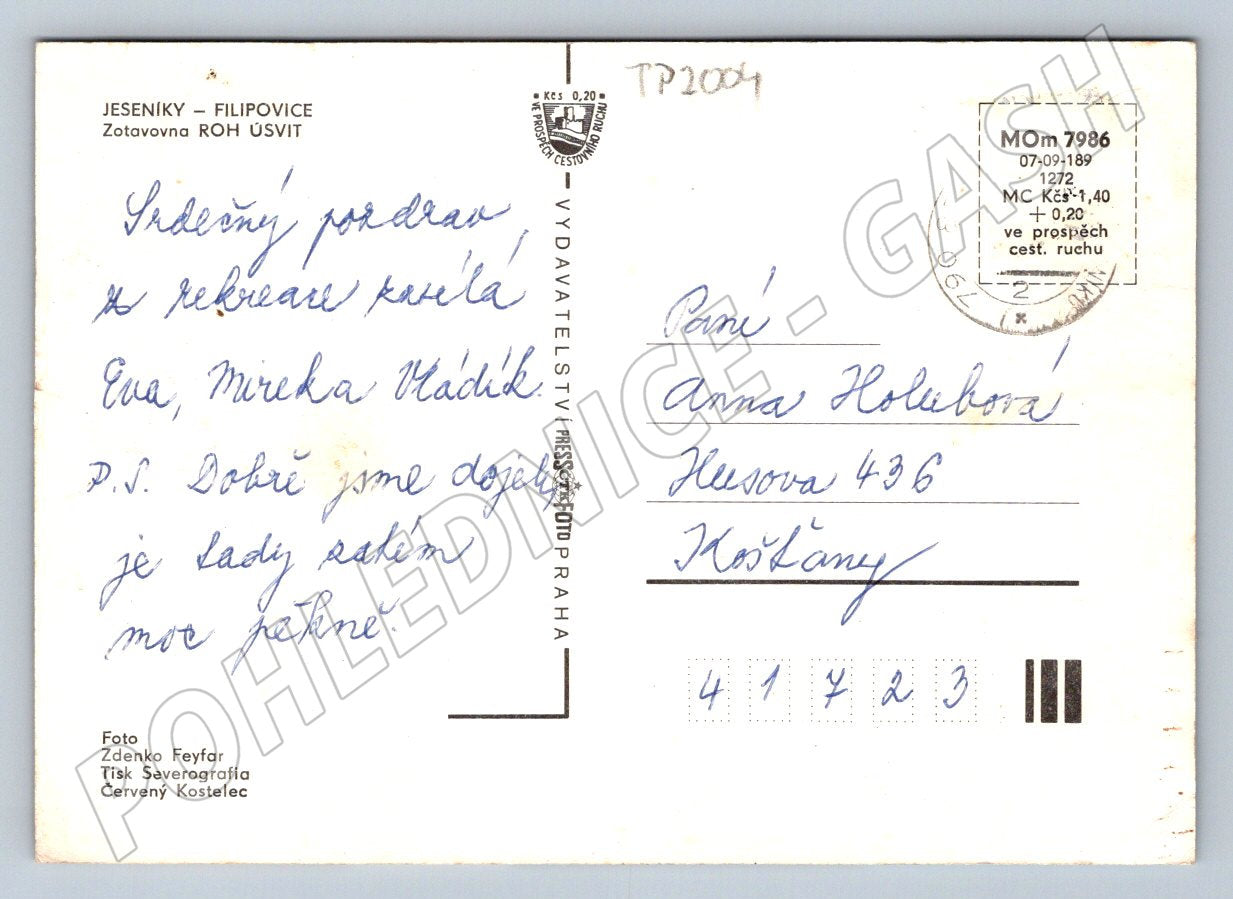 JESENÍKY – FILIPOVICE
Zotavovna ROH ÚSVIT
Srdečný pozdrav
z rekreace zasílá
Eva, Mirek a Vládík.
P.S. Dobře jsme dojeli,
je tady zatím
moc pěkně.
Foto
Zdenko Feyfar
Tisk Severografia
Červený Kostelec
• Kčs 0,20 •
VE PROSPĚCH CESTOVNÍHO RUCHU
VYDAVATELSTVÍ PRESSFOTO PRAHA
ČTK
TP2004
MOm 7986
07-09-189
1272
MC Kčs 1,40
+ 0,20
ve prospěch
cest. ruchu
2
Paní
Anna Holubová
Husova 436
Košťany
41723
POHLEDNICE - GASH